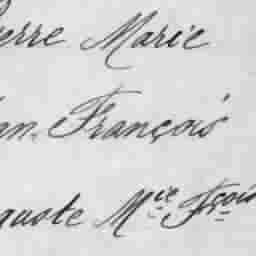 ierre Marie
an François
quote Mᵛᵉ Fçois